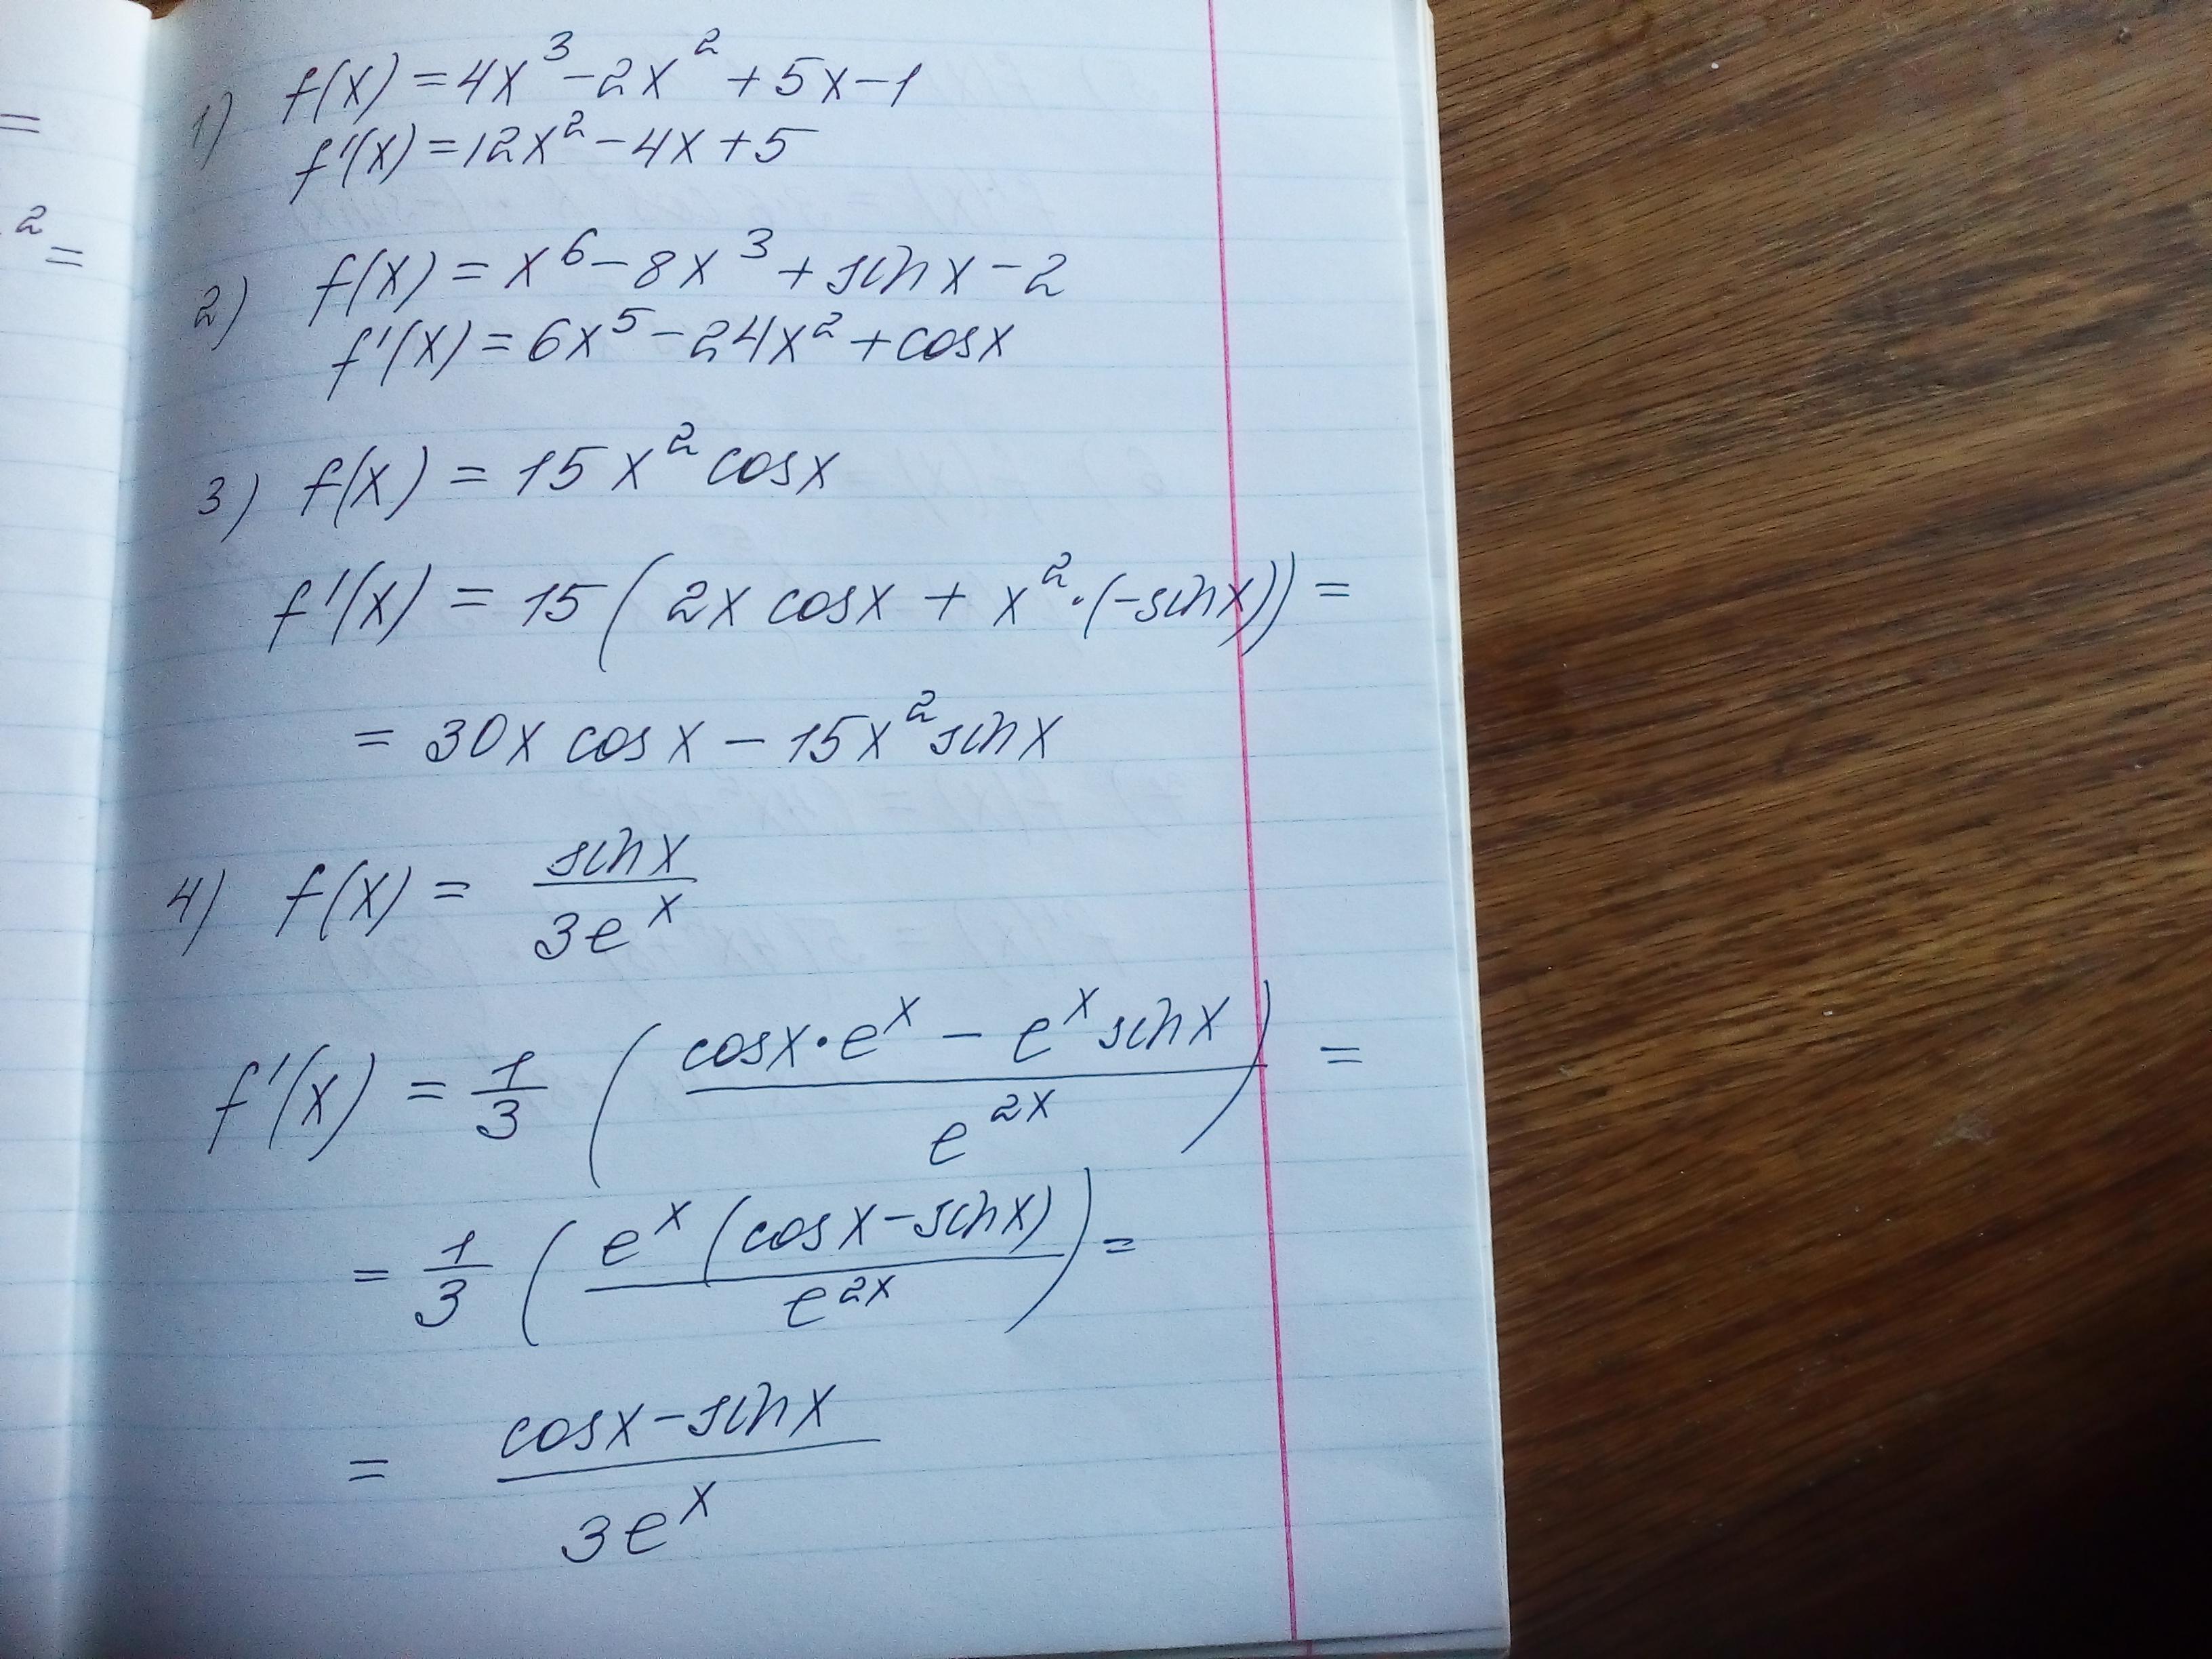 =
2 =
1) f(x) = 4x³ - 2x² + 5x - 1
f'(x) = 12x² - 4x + 5
2) f(x) = x⁶ - 8x³ + sin x - 2
f'(x) = 6x⁵ - 24x² + cos x
3) f(x) = 15x² cos x
f'(x) = 15 ( 2x cos x + x² · (-sin x)) =
= 30x cos x - 15x² sin x
4) f(x) = sin x / 3eˣ
f'(x) = 1/3 ( (cos x · eˣ - eˣ sin x) / e²ˣ ) =
= 1/3 ( eˣ (cos x - sin x) / e²ˣ ) =
= (cos x - sin x) / 3eˣ